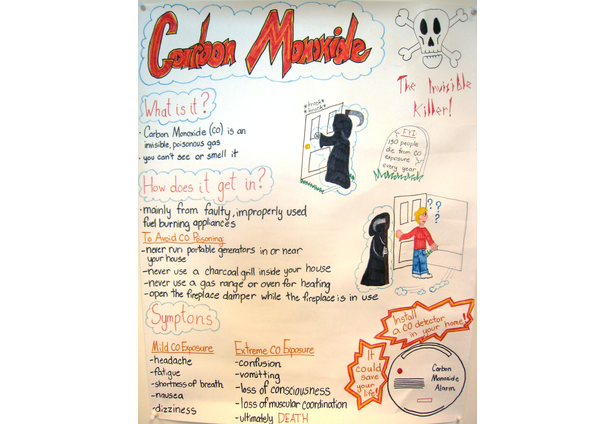 Carbon Monoxide
The Invisible
Killer!
What is it?
· Carbon Monoxide (CO) is an
invisible, poisonous gas
· you can't see or smell it
*knock*
*knock*
FYI:
150 people
die from CO
exposure
every year
How does it get in?
· mainly from faulty, improperly used
fuel burning appliances
To Avoid CO Poisoning:
-never run portable generators in or near
your house
-never use a charcoal grill inside your house
-never use a gas range or oven for heating
-open the fireplace damper while the fireplace is in use
? ?
?
Symptons
Mild CO Exposure
-headache
-fatigue
-shortness of breath
-nausea
-dizziness
Extreme CO Exposure
-confusion
-vomitting
-loss of consciousness
-loss of muscular coordination
-ultimately DEATH
Install
a CO detector
in your home!
It
could
save
your
life!
Carbon
Monoxide
Alarm